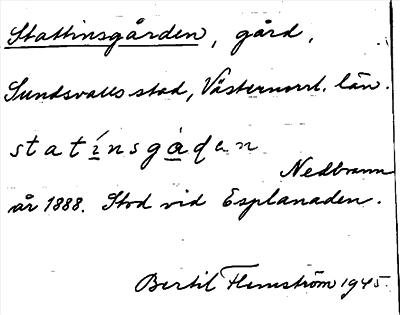 Stattinsgården, gård,
Sundsvalls stad, Västernorrl. län.
statínsgàdan
Nedbrann
år 1888. Stod vid Esplanaden.
Bertil Flemström 1945